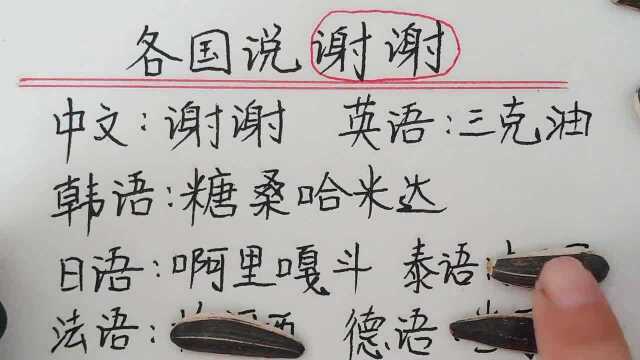 各国说谢谢
中文:谢谢 英语:三克油
韩语:糖桑哈米达
日语:啊里嘎斗 泰语:
法语: 德语: